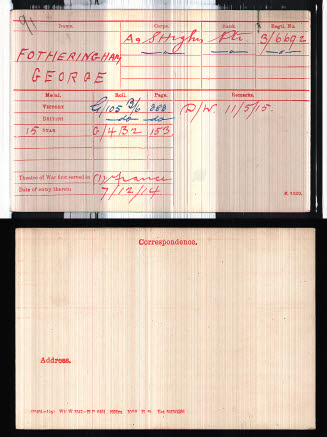 Name. Corps. Rank. Regtl. No.
FOTHERINGHAM A & S Highrs Pte S/6692
GEORGE
Medal. Roll. Page. Remarks.
VICTORY G/105 B/6 868 (D/W. 11/5/15.
BRITISH do do
15 STAR G/4 B2 153
Theatre of War first served in (1) France
Date of entry therein 7/12/14
K. 1380.
Correspondence.
Address.